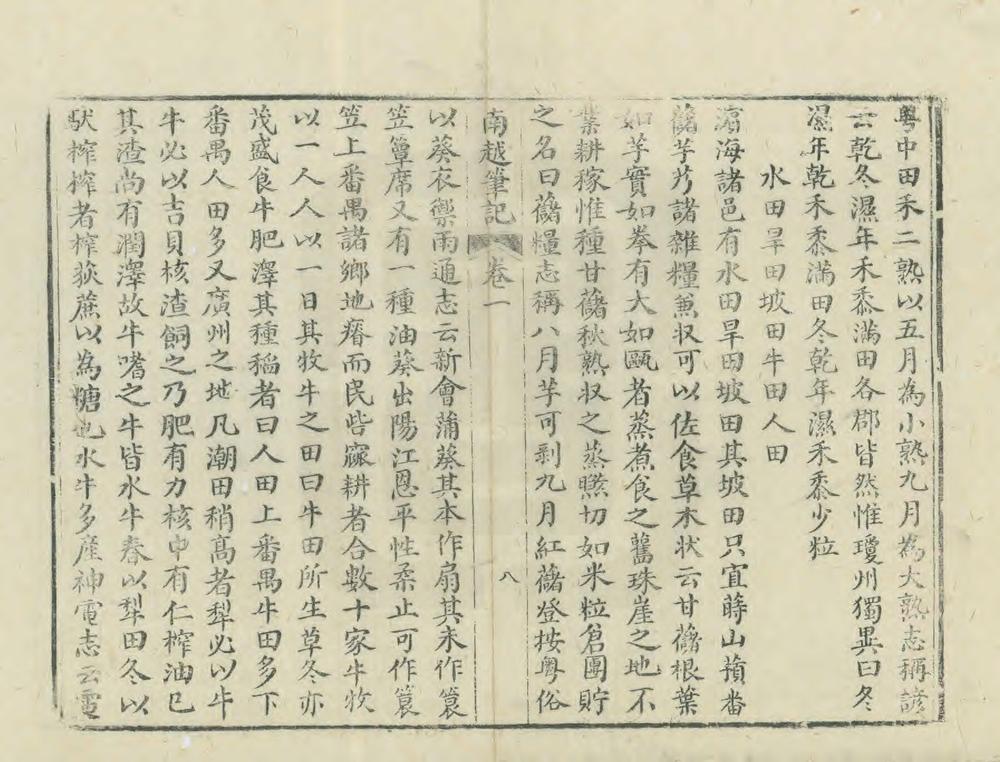 粤中田禾二熟以五月為小熟九月為大熟志稱諺
云乾冬濕年禾黍滿田各郡皆然惟瓊州獨異曰冬
濕年乾禾黍滿田冬乾年濕禾黍少粒
水田旱田坡田牛田人田
瀕海諸邑有水田旱田坡田其坡田只宜蒔山蕷番
藷芋艿諸雜糧兼収可以佐食草木状云甘藷根葉
如芋實如拳有大如甌者蒸煮食之舊珠崖之地不
業耕稼惟種甘藷秋熟収之蒸曬切如米粒倉圌貯
之名曰藷糧志稱八月芋可剥九月紅藷登按粤俗
南越筆記 卷一 八
以葵衣禦雨通志云新會蒲葵其本作扇其末作簑
笠簟席又有一種油葵出陽江恩平性柔止可作簑
笠上番禺諸鄉地瘠而民呰窳耕者合數十家牛牧
以一人人以一日其牧牛之田曰牛田所生草冬亦
茂盛食牛肥澤其種稻者曰人田上番禺牛田多下
番禺人田多又廣州之地凡潮田稍髙者犁必以牛
牛必以吉貝核渣飼之乃肥有力核中有仁榨油已
其渣尚有潤澤故牛嗜之牛皆水牛春以犁田冬以
馱榨榨者榨荻蔗以為糖也水牛多産神電志云電